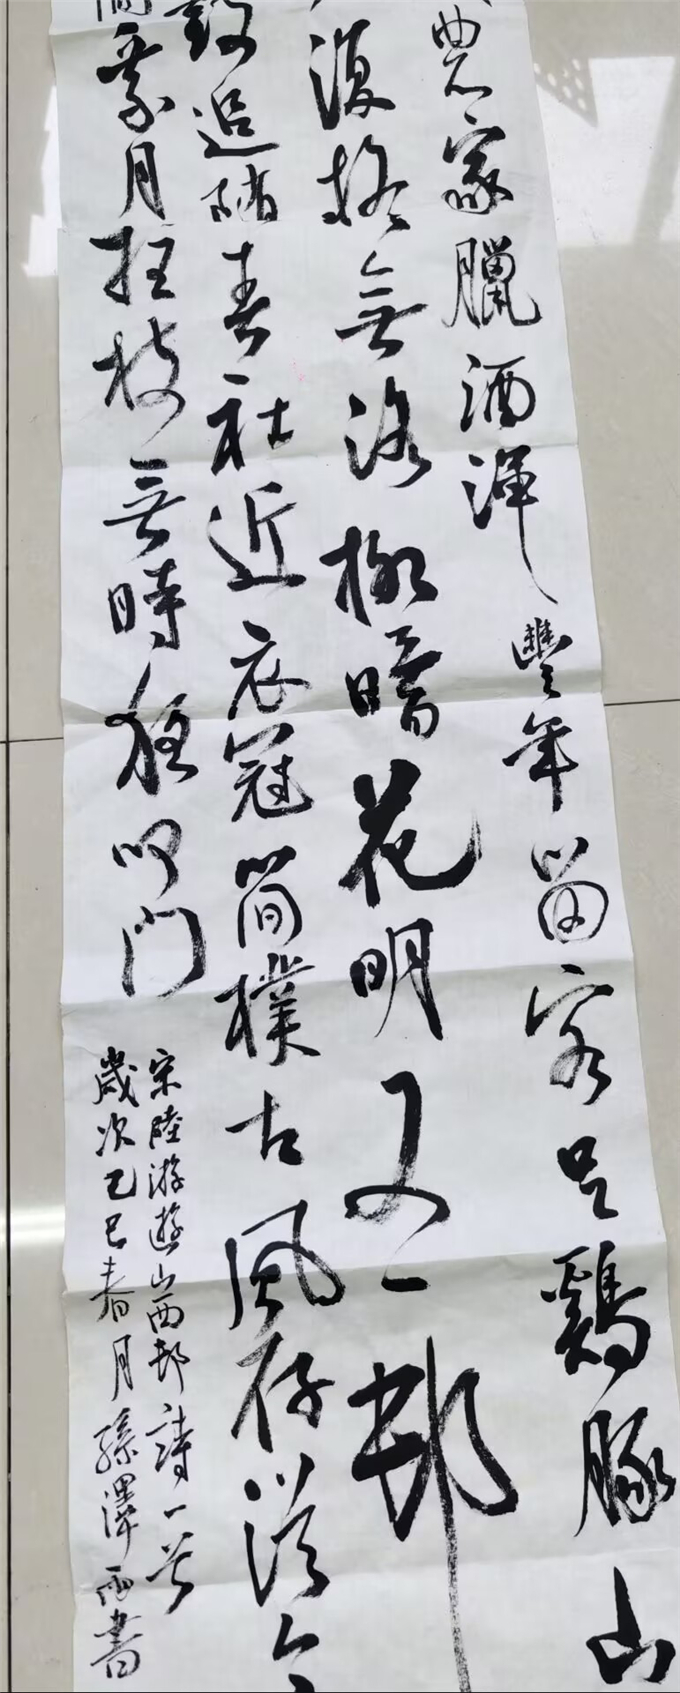 農家臘酒渾豐年留客足鷄豚山
復疑無路柳暗花明又一邨
鼓追隨春社近衣冠簡樸古風存從今
閒乘月拄杖無時夜叩門
宋陸游遊山西邨詩一首
歲次乙巳春月孫澤雨書